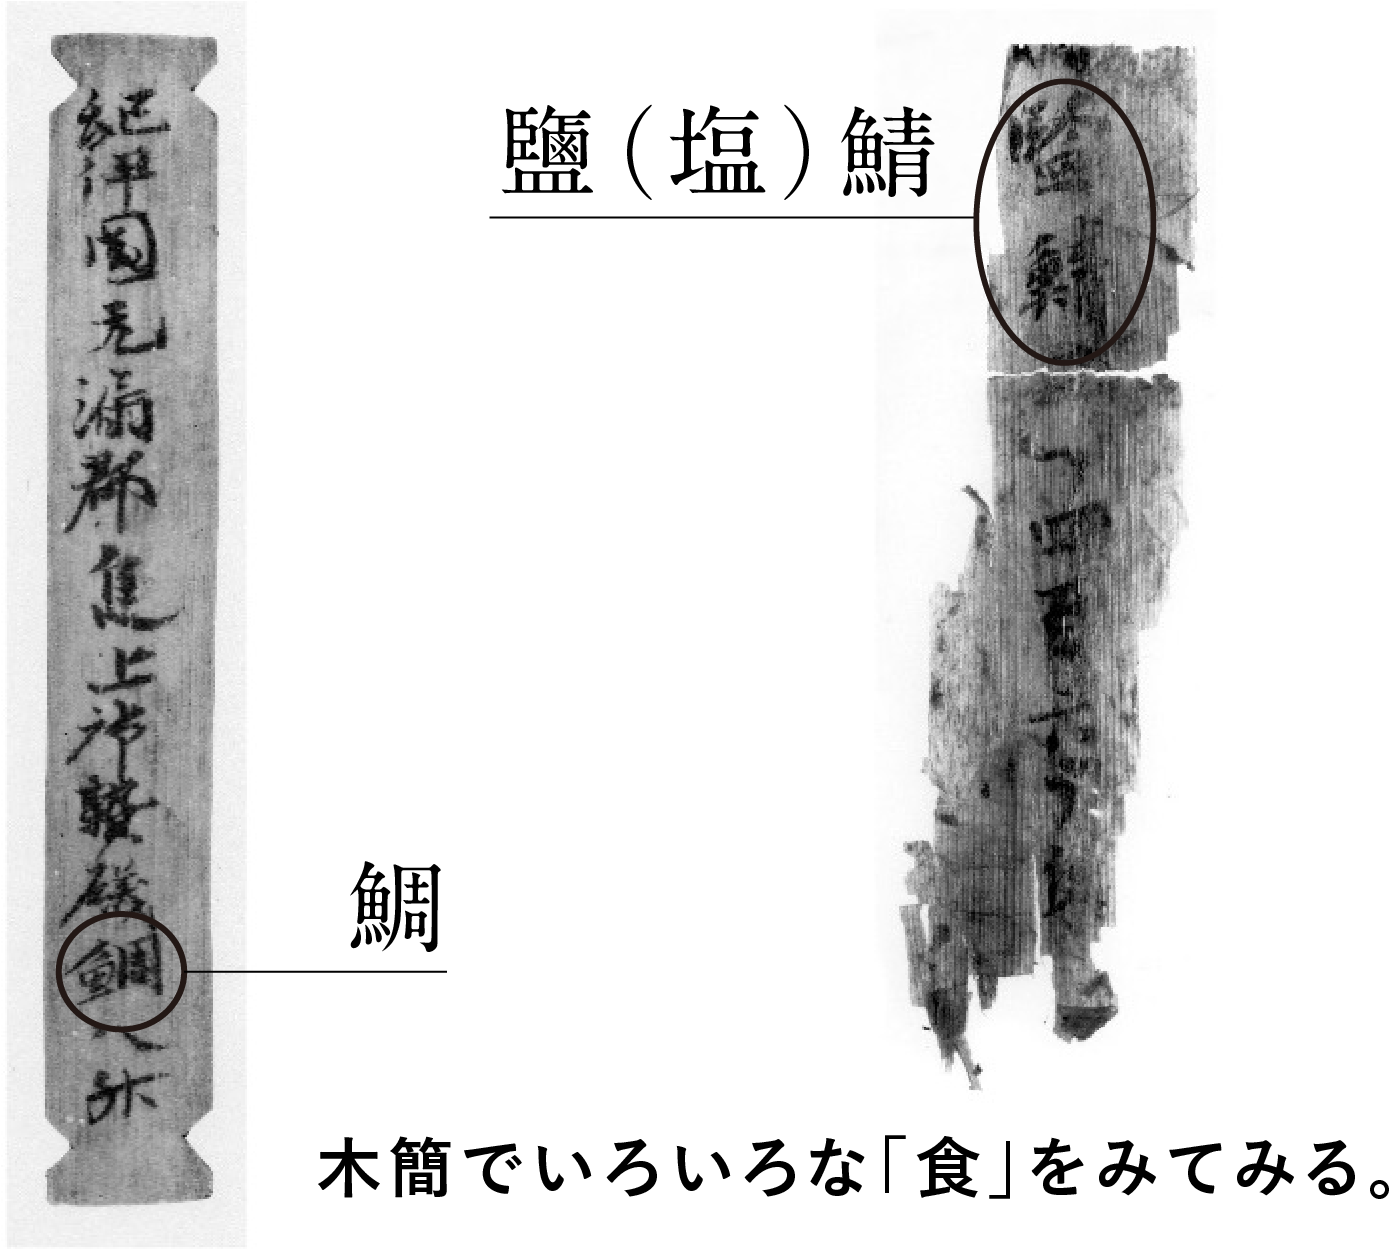 紀伊國无漏郡進上御贄磯鯛八升
鯛
鹽（塩）鯖
鹽鯖
木簡でいろいろな「食」をみてみる。